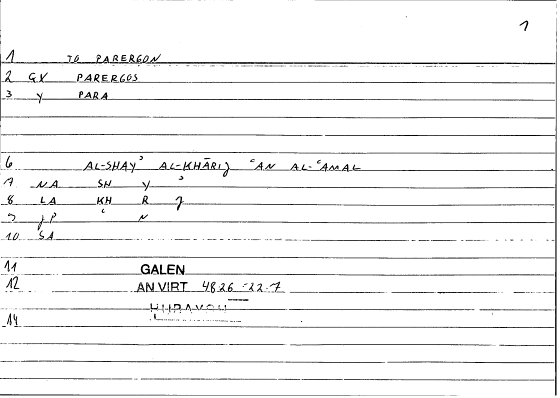 1
1 TO PARERGON
2 GX PARERGOS
3 Y PARA
6 AL-SHAYʾ AL-KHĀRIJ ʿAN AL-ʿAMAL
7 NA SH Y ʾ
8 LA KH R J
9 JP ʿ N
10 SA
11 GALEN
12 AN VIRT 4826 -22.7
14